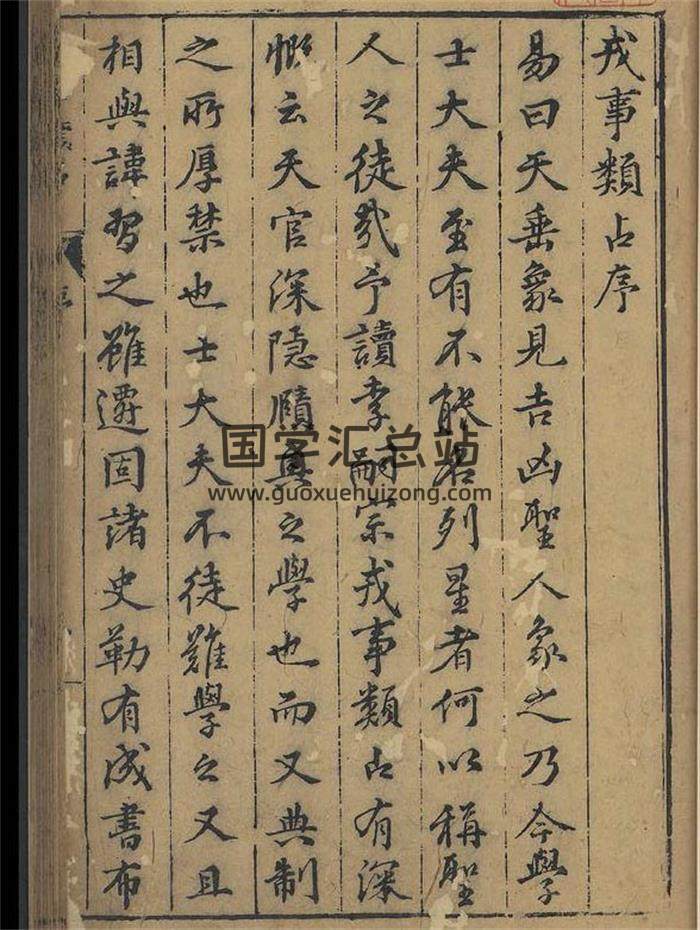 戎事類占序
易曰天垂象見吉凶聖人象之乃今學
士大夫至有不能名列星者何以稱聖
人之徒哉予讀李嗣宗戎事類占有深
慨云天官深隱賾奧之學也而又典制
之所厚禁也士大夫不徒難學之又且
相與諱習之雖遷固諸史勒有成書布
国学汇总站
www.guoxuehuizong.com